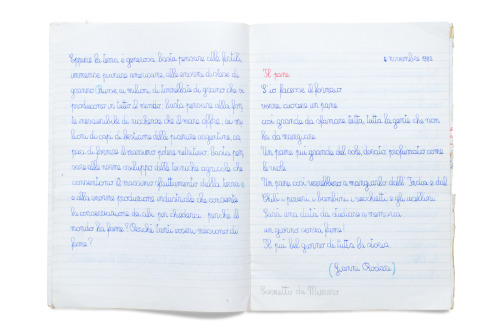 Eppure la terra è generosa: basta pensare alle fertili
immense pianure americane, alle enormi distese di
grano
di tonnellate di grano che si
producono in tutto il mondo; basta pensare alla fon-
te inesauribile di ricchezze che il mare offre, ai mi-
lioni di capi di bestiame delle pianure argentine, ca-
paci di fornire il massimo potere nutritivo. Basta pen-
sare allo enorme sviluppo delle tecniche agricole che
consentono il massimo sfruttamento della terra e
alla enorme produzione industriale che consente
la conservazione dei cibi, per chiedersi: perché il
mondo ha fame? Perché tanti esseri muoiono di
fame?
6 novembre 1992
Il pane
S'io facessi il fornaio
vorrei cuocere un pane
così grande da sfamare tutta, tutta la gente che non
ha da mangiare.
Un pane più grande del sole, dorato, profumato come
le viole.
Un pane così verrebbero a mangiarlo dall'India e dal
Chilì i poveri, i bambini, i vecchietti e gli uccellini.
Sarà una data da studiare a memoria:
un giorno senza fame!
Il più bel giorno di tutta la storia.
(Gianni Rodari)